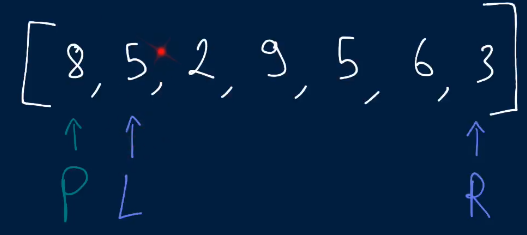 [8, 5, 2, 9, 5, 6, 3]
P L R